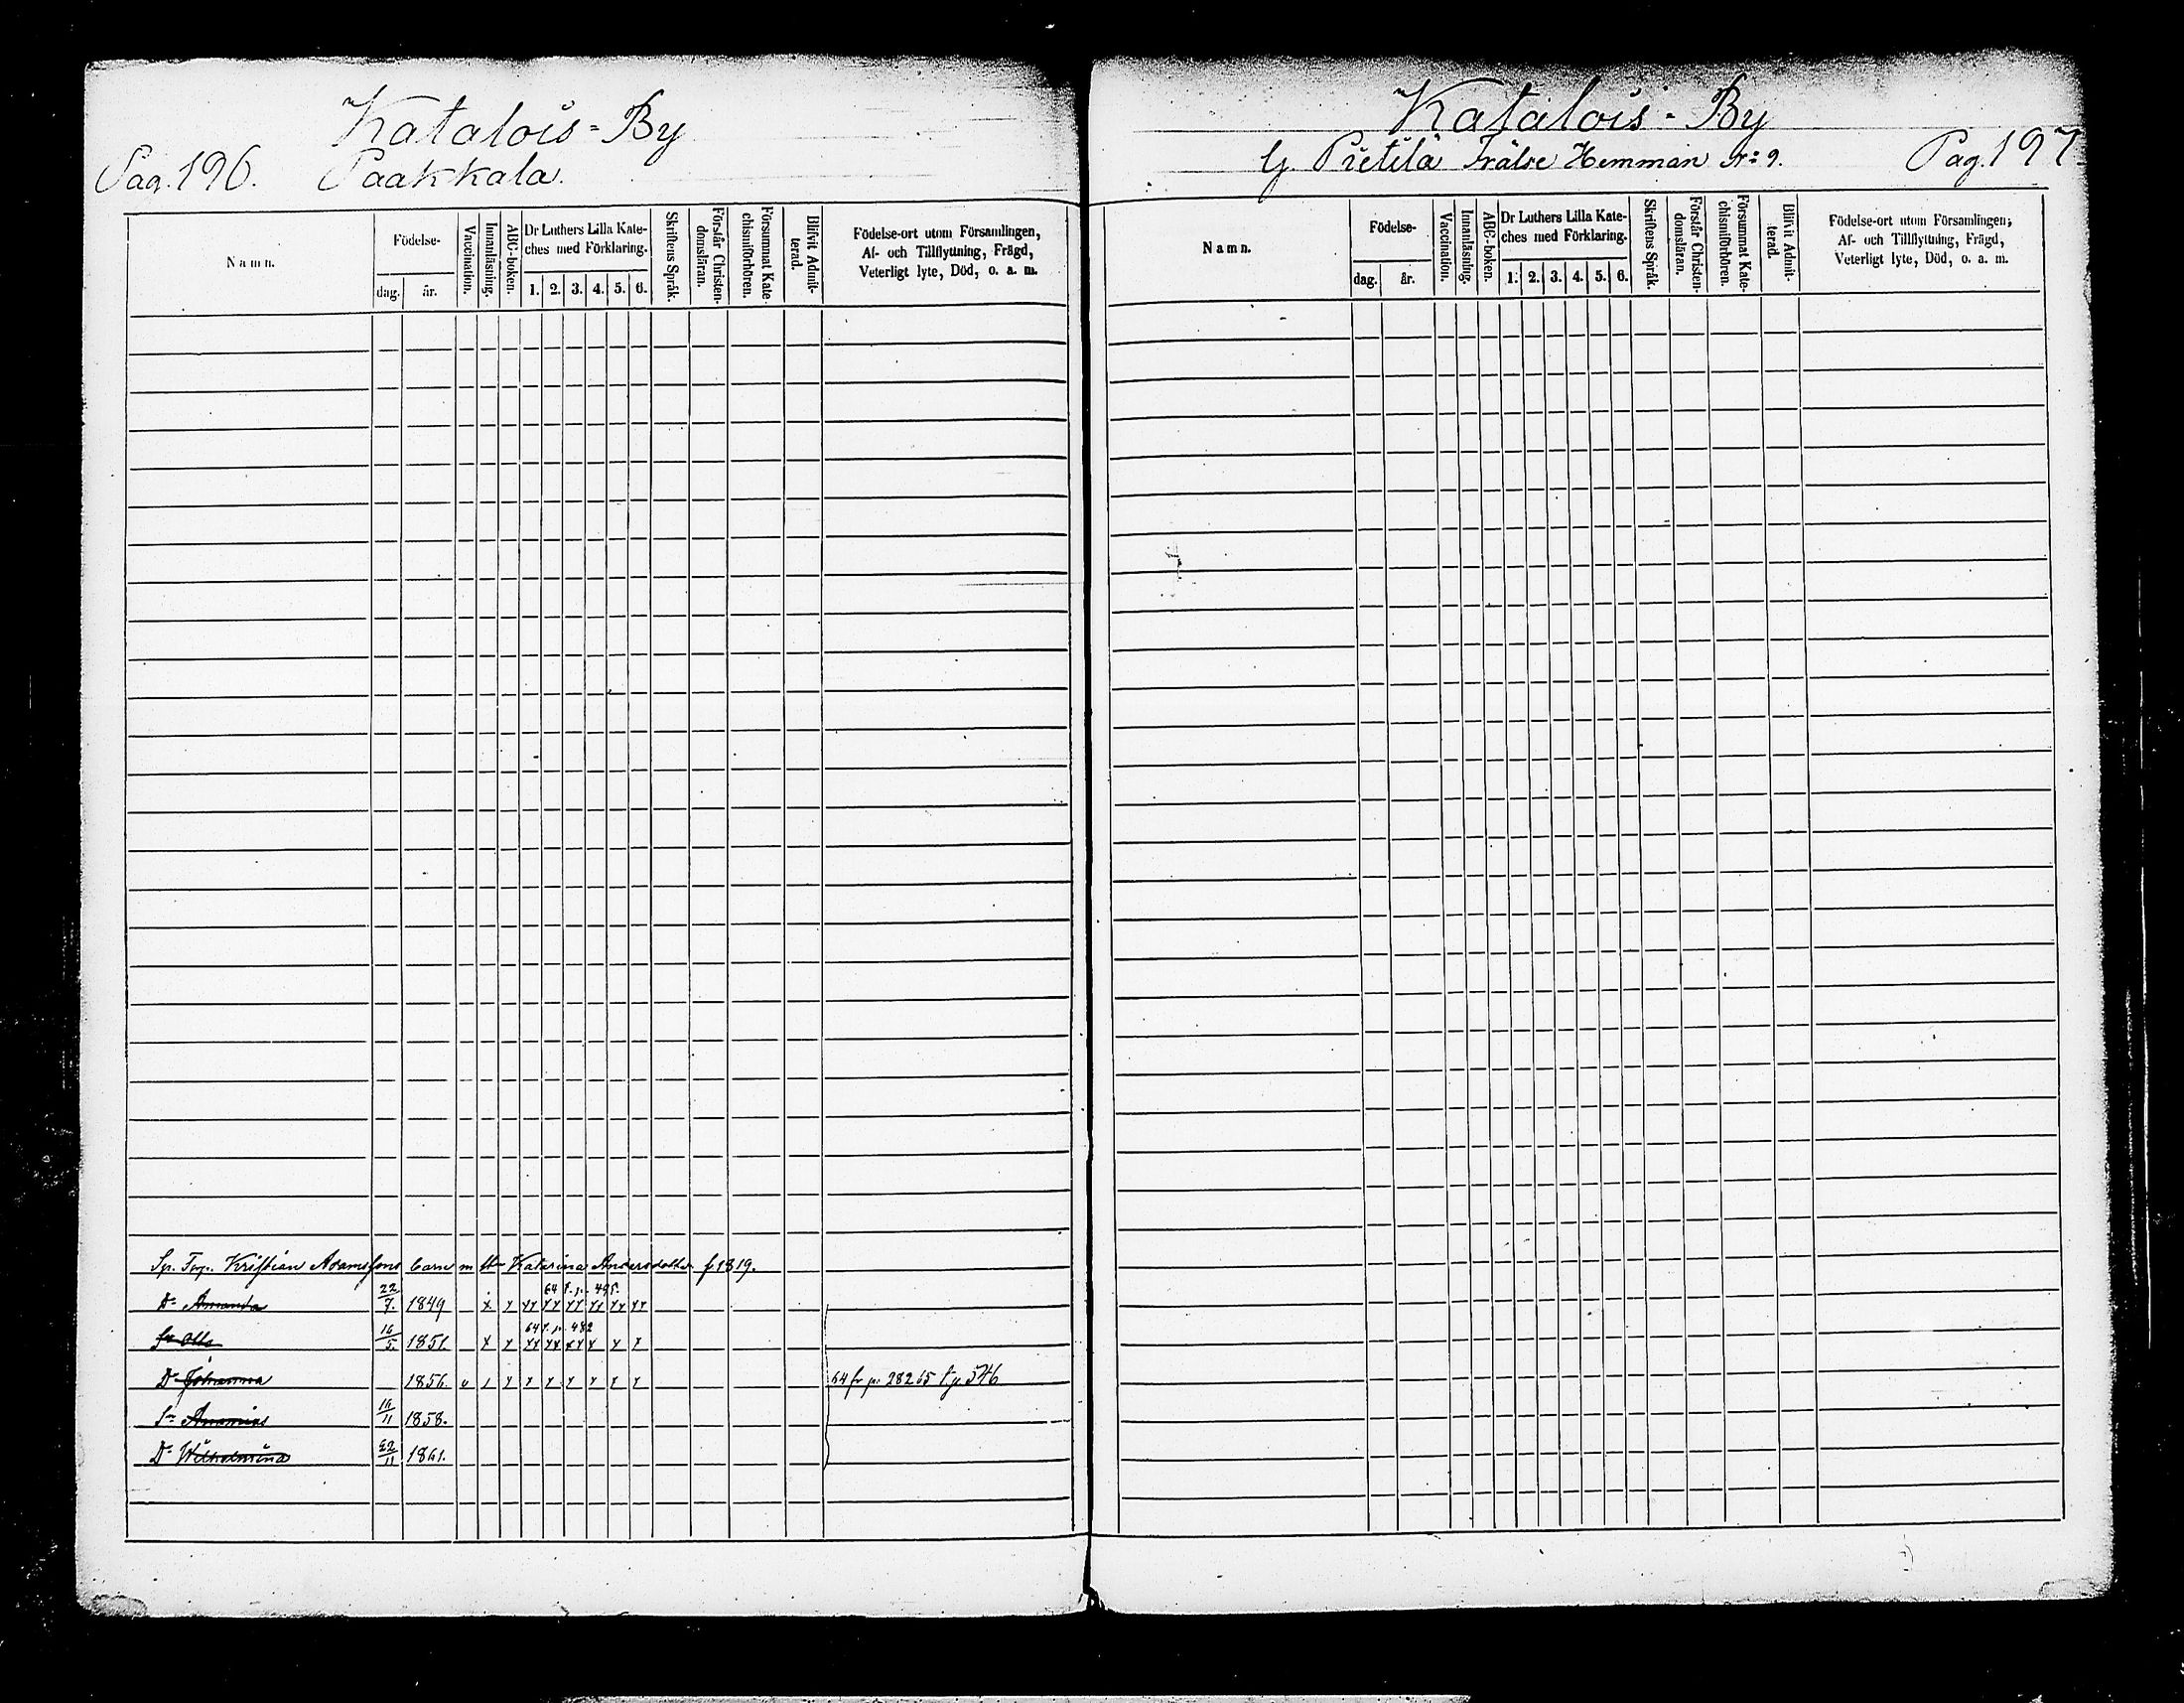 Katalois-By
Pag. 196. Paakkala.
Namn.
Födelse-
dag. år.
Vaccination.
Innanläsning.
ABC-boken.
Dr Luthers Lilla Kate-
ches med Förklaring.
1. 2. 3. 4. 5. 6.
Skriftens Språk.
Förstår Christen-
domsläran.
Försummat Kate-
chismiförhören.
Blifvit Admit-
terad.
Födelse-ort utom Församlingen,
Af- och Tillflyttning, Frägd,
Veterligt lyte, Död, o. a. m.
Kristian Adamssons barn m Katarina Andersdotter f 1819.
64 t. p. 495.
Dr Amanda 22/7. 1849 x x xx xx xx xx xx xx
64 t. p. 482
Sn Otto 16/5. 1851. x x xx xx xx x x x
Dr Johanna 1856. x x x x x x x 64 fr p. 282 65 t p. 546
Sn Ananias 16/11 1858.
Dr Wilhelmina 22/11 1861.
Katalois-By
G. Pietilä Frälse Hemman No 9. Pag. 197
Namn.
Födelse-
dag. år.
Vaccination.
Innanläsning.
ABC-boken.
Dr Luthers Lilla Kate-
ches med Förklaring.
1. 2. 3. 4. 5. 6.
Skriftens Språk.
Förstår Christen-
domsläran.
Försummat Kate-
chismiförhören.
Blifvit Admit-
terad.
Födelse-ort utom Församlingen,
Af- och Tillflyttning, Frägd,
Veterligt lyte, Död, o. a. m.